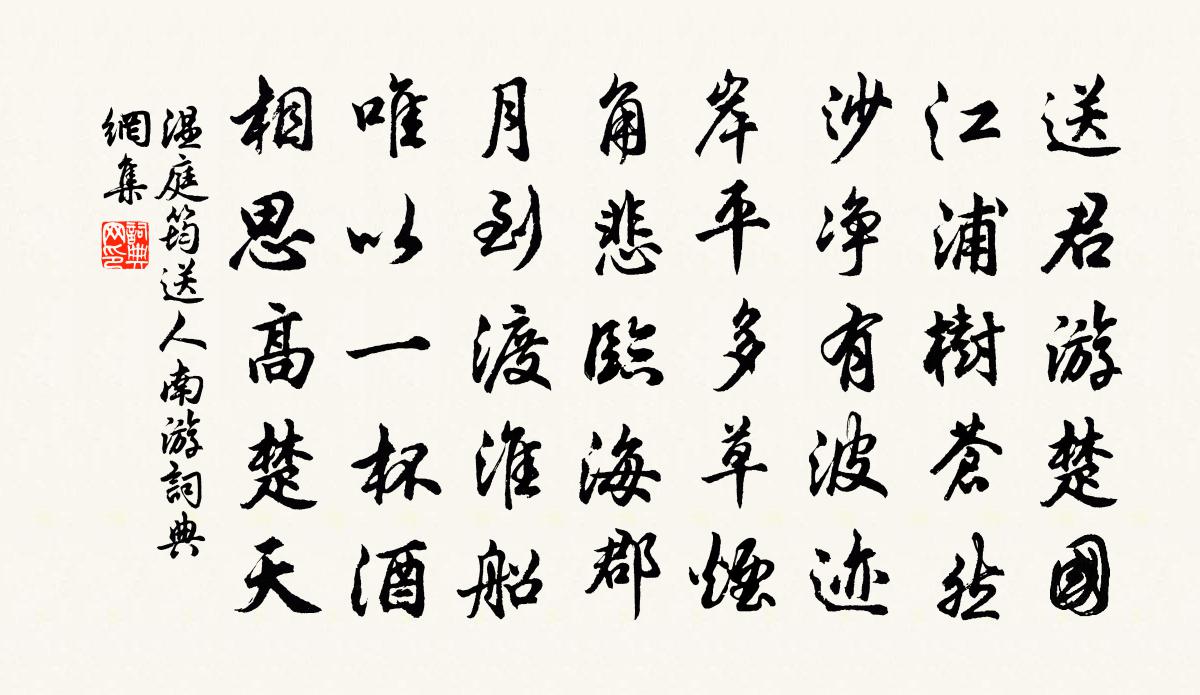 送君游楚國
江浦樹蒼然
沙净有波迹
岸平多草煙
角悲臨海郡
月到渡淮船
唯以一杯酒
相思高楚天
温庭筠送人南游詞典
網集
詞典
网印